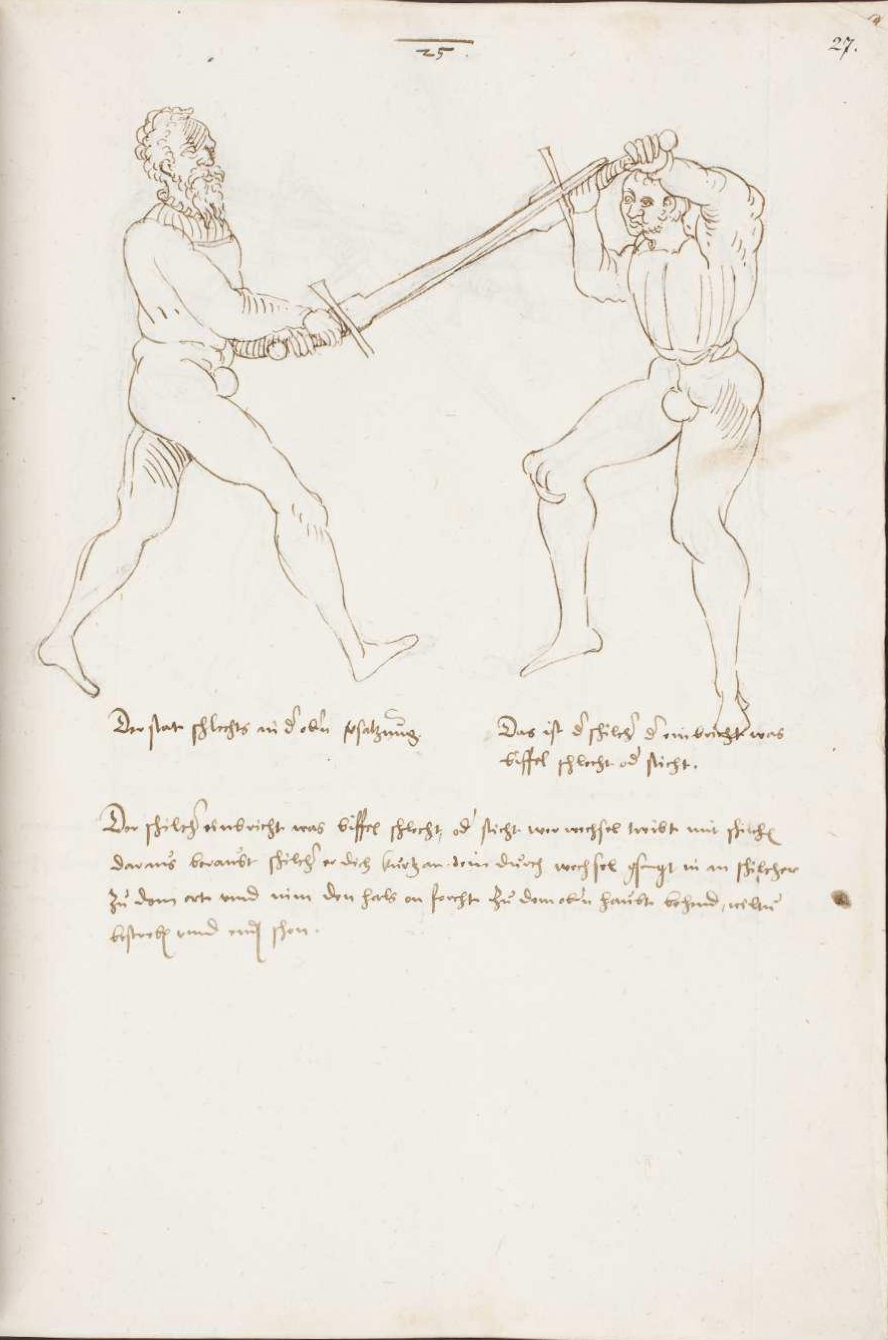 25
27.
Der stat schlechts in d' obn satzung.
Das ist d' schilch' d' einbricht was
büffel schlecht od' sticht.
Der schilch' einbricht was büffel schlecht, od' sticht wer wechsel treibt mit schilch
daraus beraubt schilch' er dich kurtz an dein durch wechsel gsigt in an schilcher
Zu dem ort vnd nim den hals on forcht Zu dem obn haubt behend, wiltu
vnd schon.